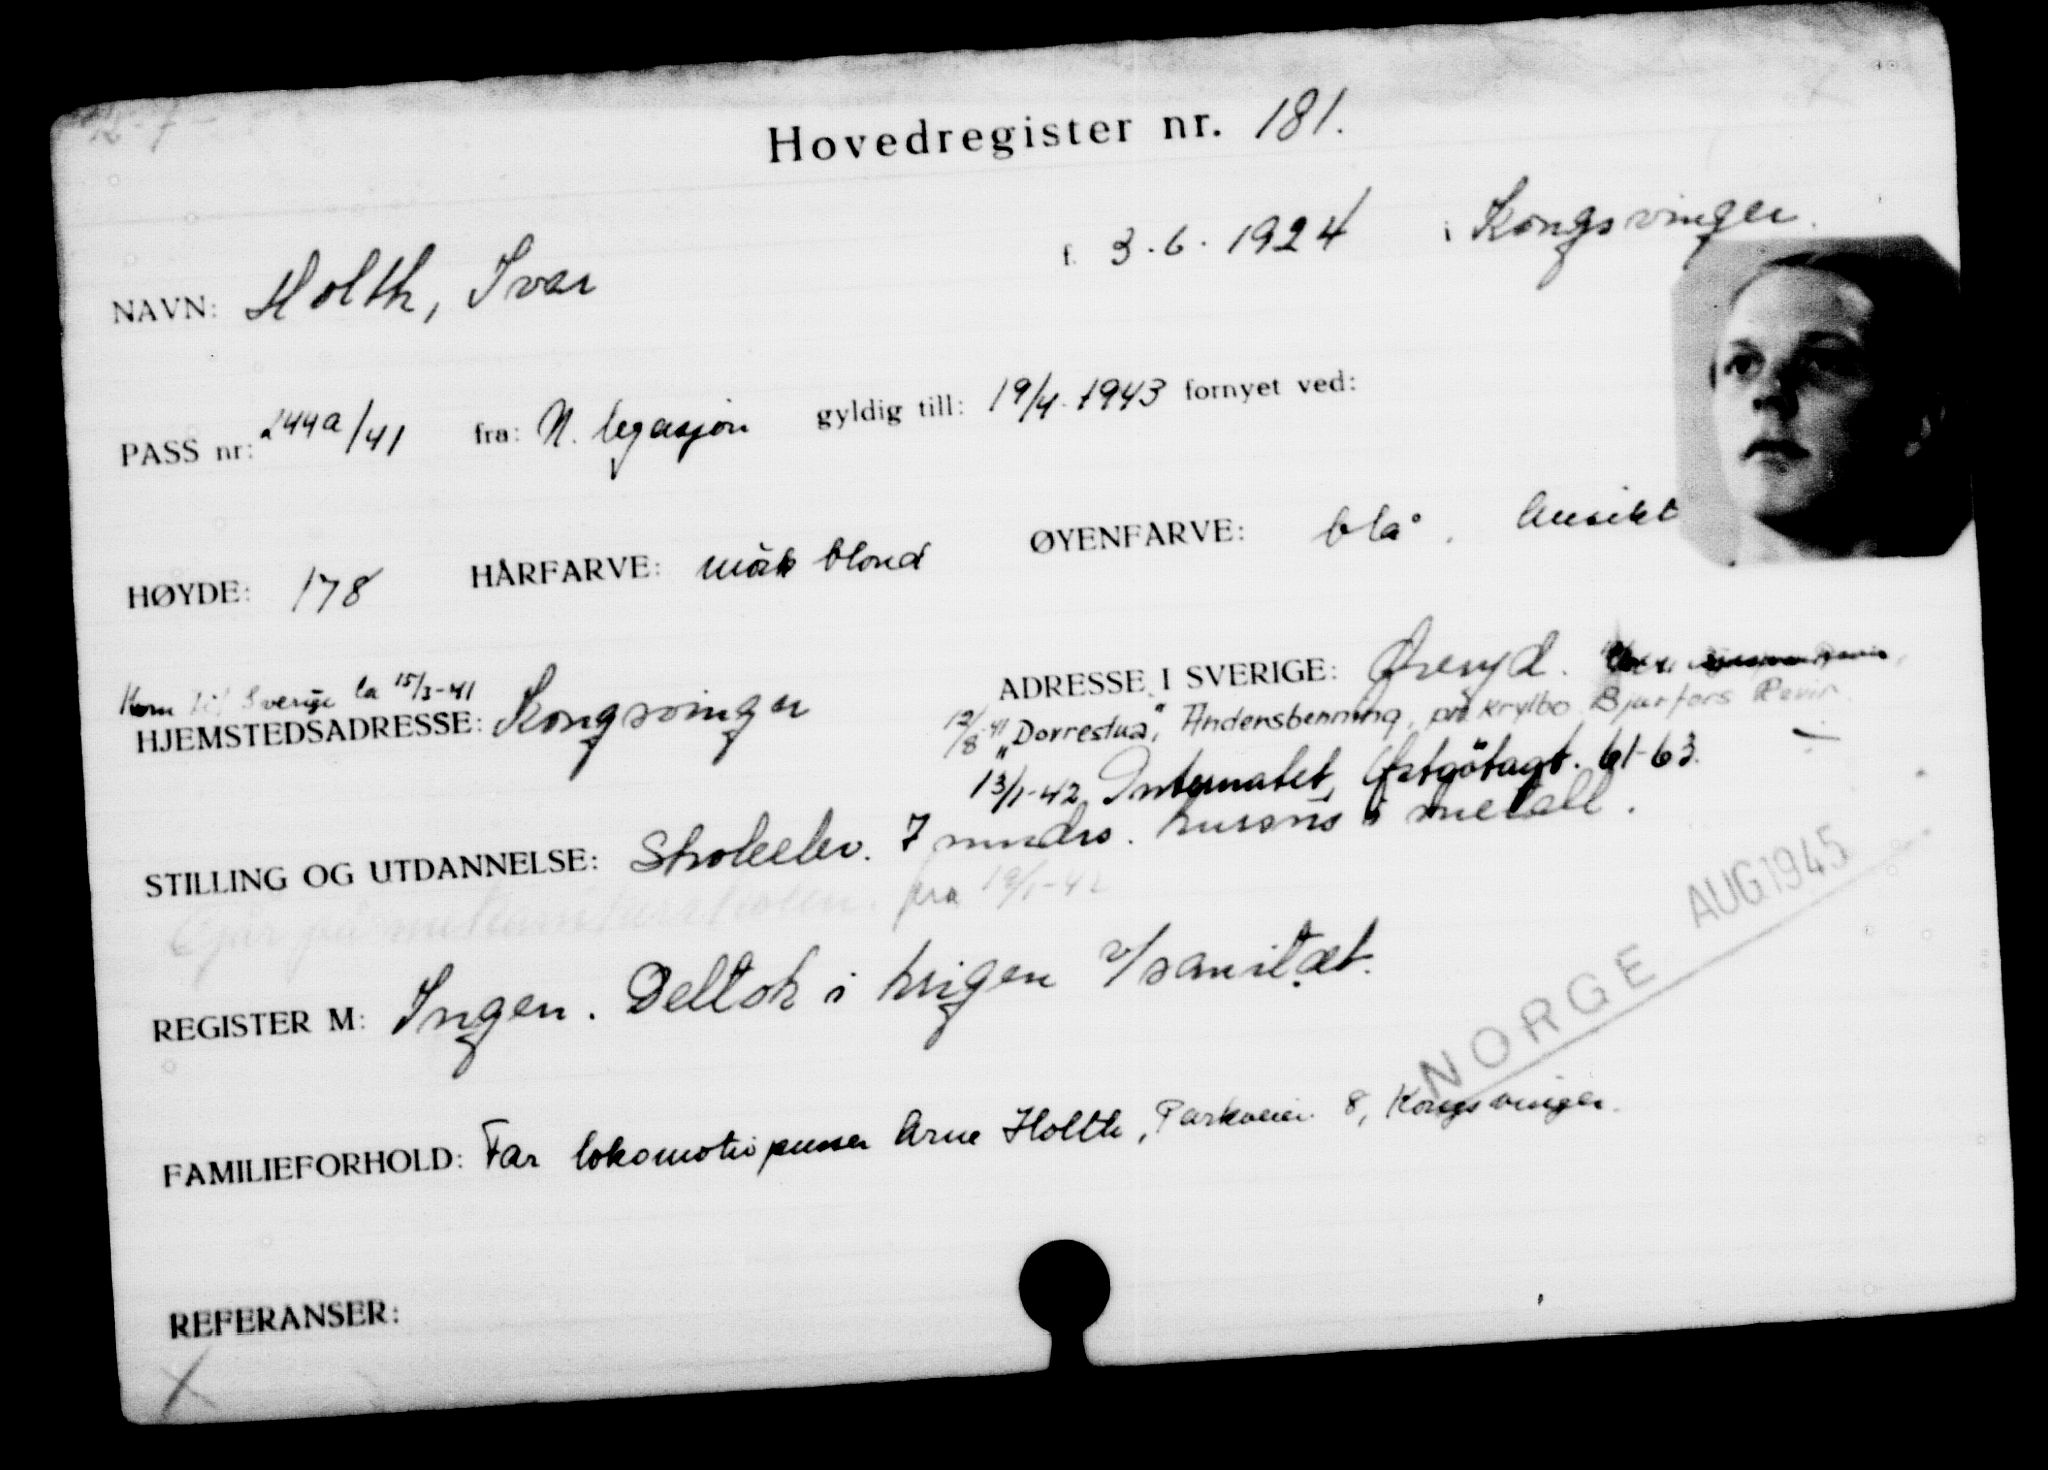 Hovedregister nr. 181.
NAVN: Holth, Ivar f. 3.6.1924 i Kongsvinger.
PASS nr: 244a/41 fra: N. legasjon gyldig till: 19/4-1943 fornyet ved:
HØYDE: 178 HÅRFARVE: mörk blond ØYENFARVE: blå. Ansikt
Kom til Sverige ca 15/3-41
HJEMSTEDSADRESSE: Kongsvinger ADRESSE I SVERIGE: Øreryd.
12/8-41 "Dorrestua", Andersbenning, pr. Krylbo Bjurfors
13/1-42 Internatet, Østgötagt. 61-63.
STILLING OG UTDANNELSE: Skoleelev. 7 mndrs. kursus i metall.
fra 19/1-42
REGISTER M: Ingen. Deltok i krigen v/sanitæt.
NORGE AUG 1945
FAMILIEFORHOLD: Far lokomotivpusser Arne Holth, Parkveien 8, Kongsvinger.
REFERANSER:
X